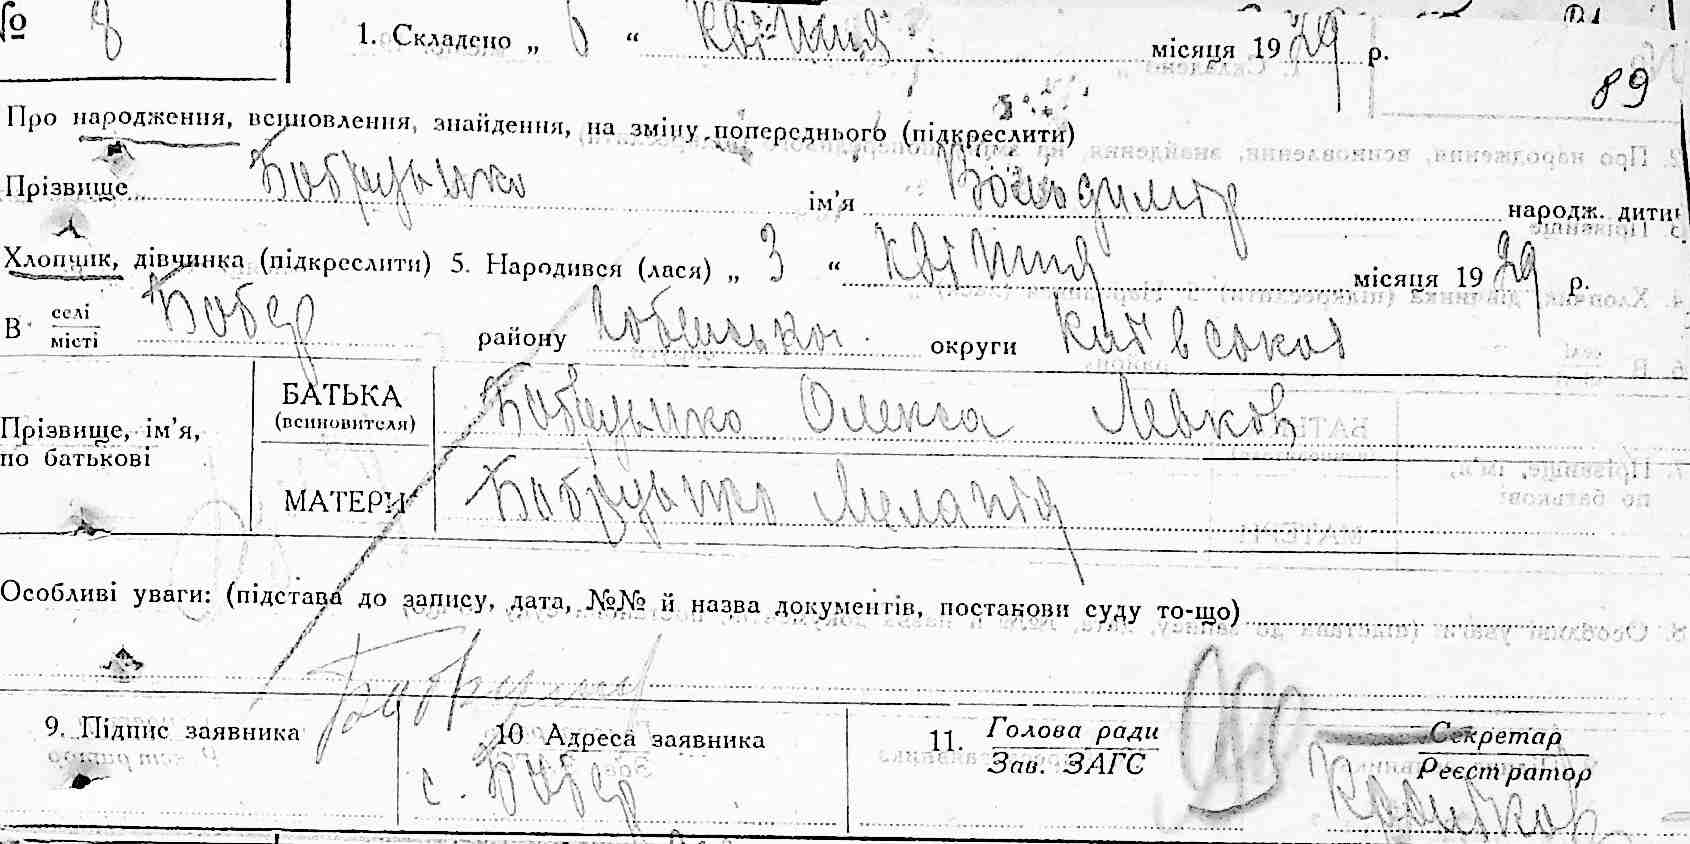 № 8 1. Складено „ 6 “ квітня місяця 1929 р.
89
Про народження, всиновлення, знайдення, на зміну попереднього (підкреслити)
Прізвище Бобрушко ім’я Володимір народж. дитин
Хлопчик, дівчинка (підкреслити) 5. Народився (лася) „ 3 “ квітня місяця 1929 р.
В селі/місті Бобер району округи Київської
Прізвище, ім’я, по батькові
БАТЬКА (всиновителя) Олекса Левков
МАТЕРИ Меланія
Особливі уваги: (підстава до запису, дата, №№ й назва документів, постанови суду то-що)
9. Підпис заявника 10 Адреса заявника 11. Голова ради Секретар
Зав. ЗАГС Реєстратор
с. Бобер